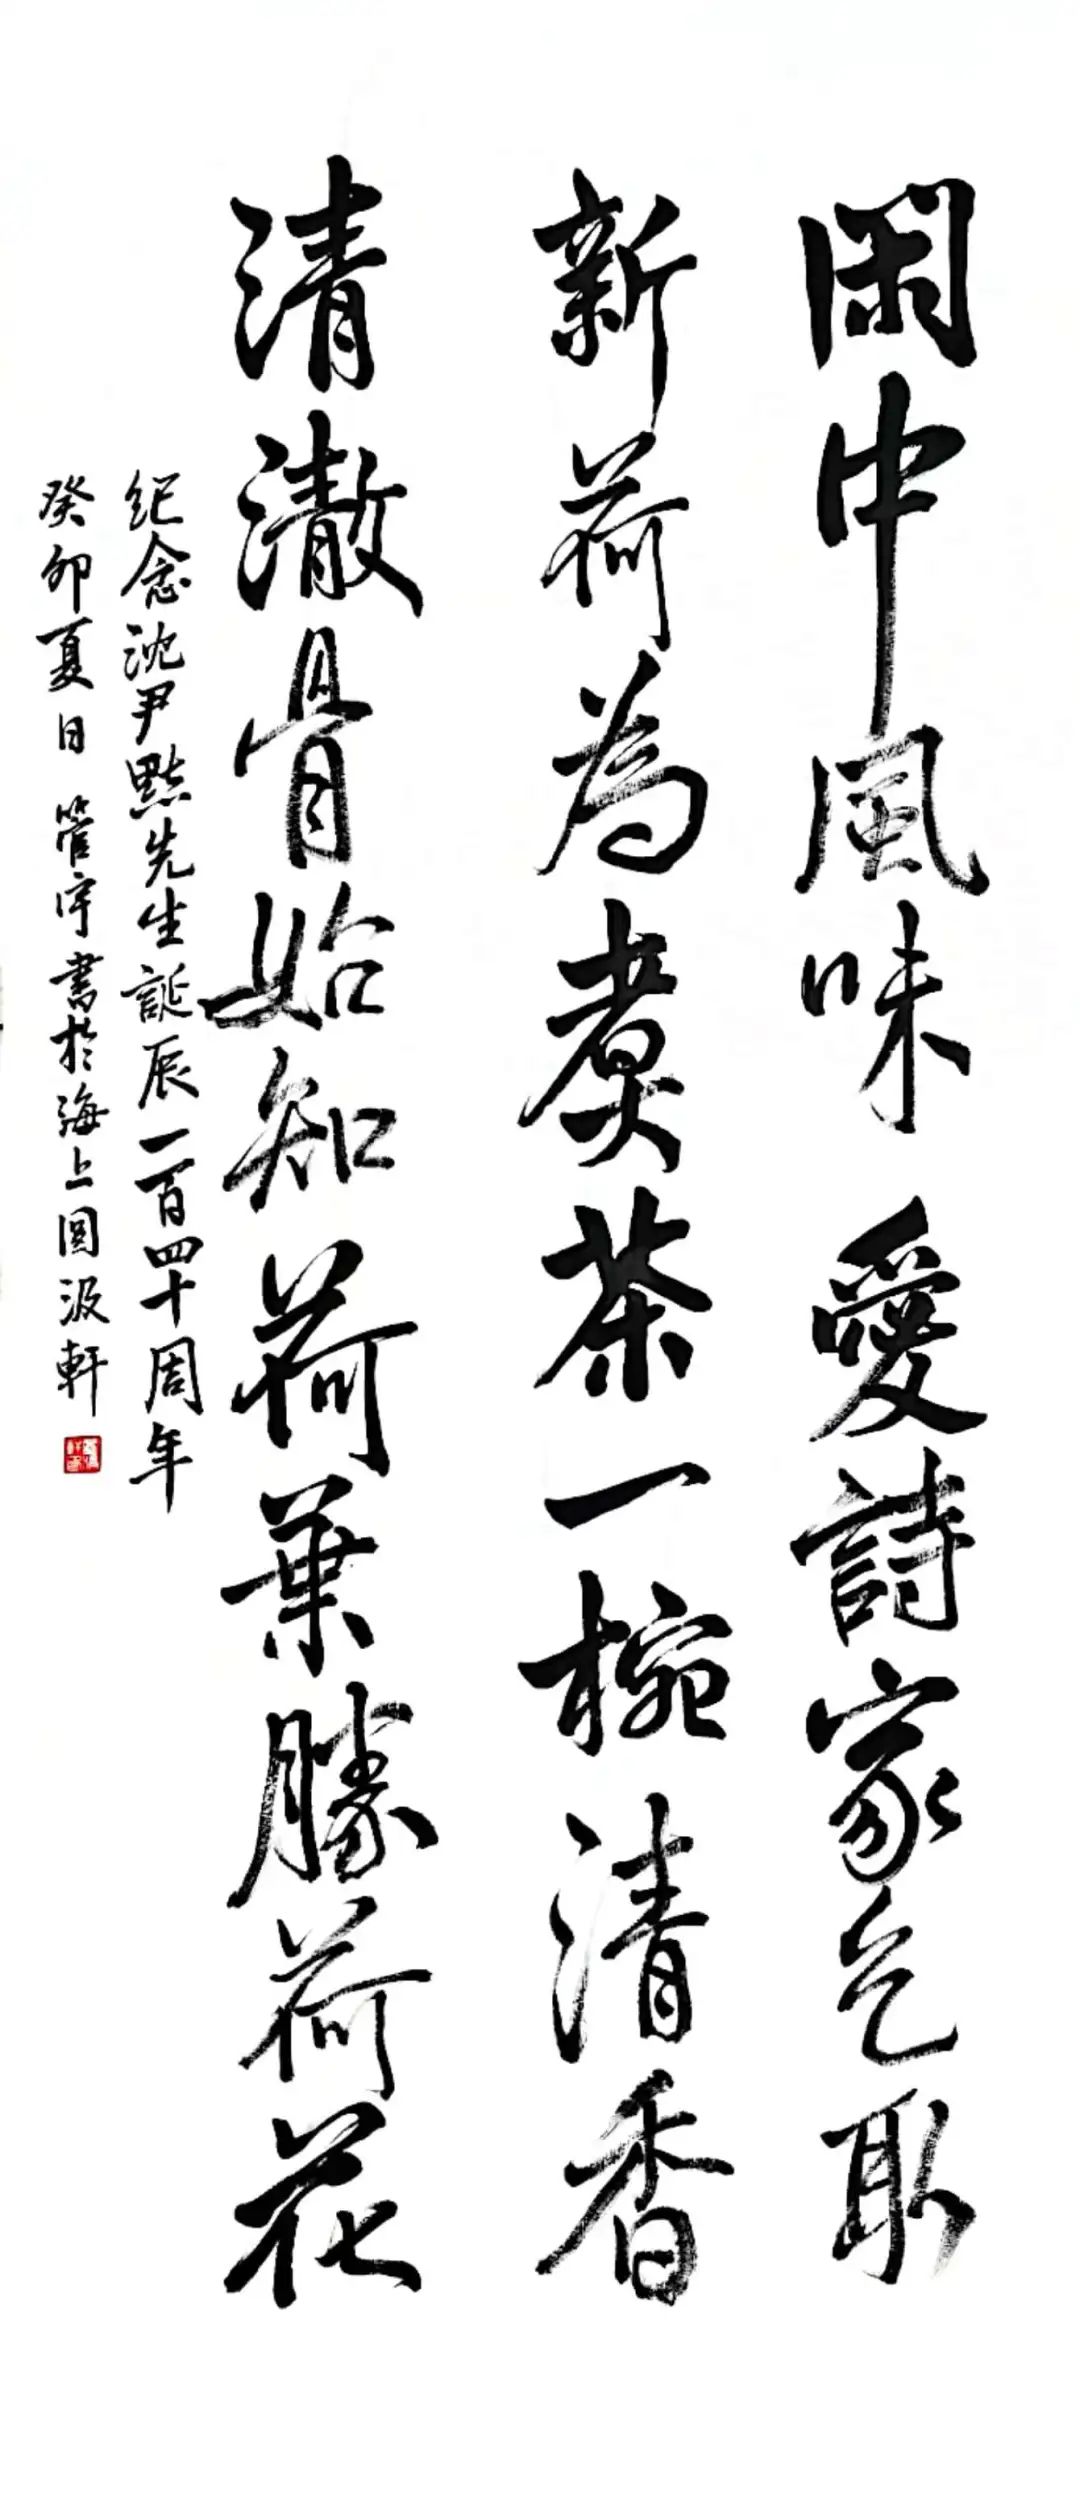 閑中風味愛詩家乞取
新荷為煮茶一椀清香
清澈骨始知荷葉勝荷花
紀念沈尹默先生誕辰一百四十周年
癸卯夏日 管宇書於海上圓汲軒